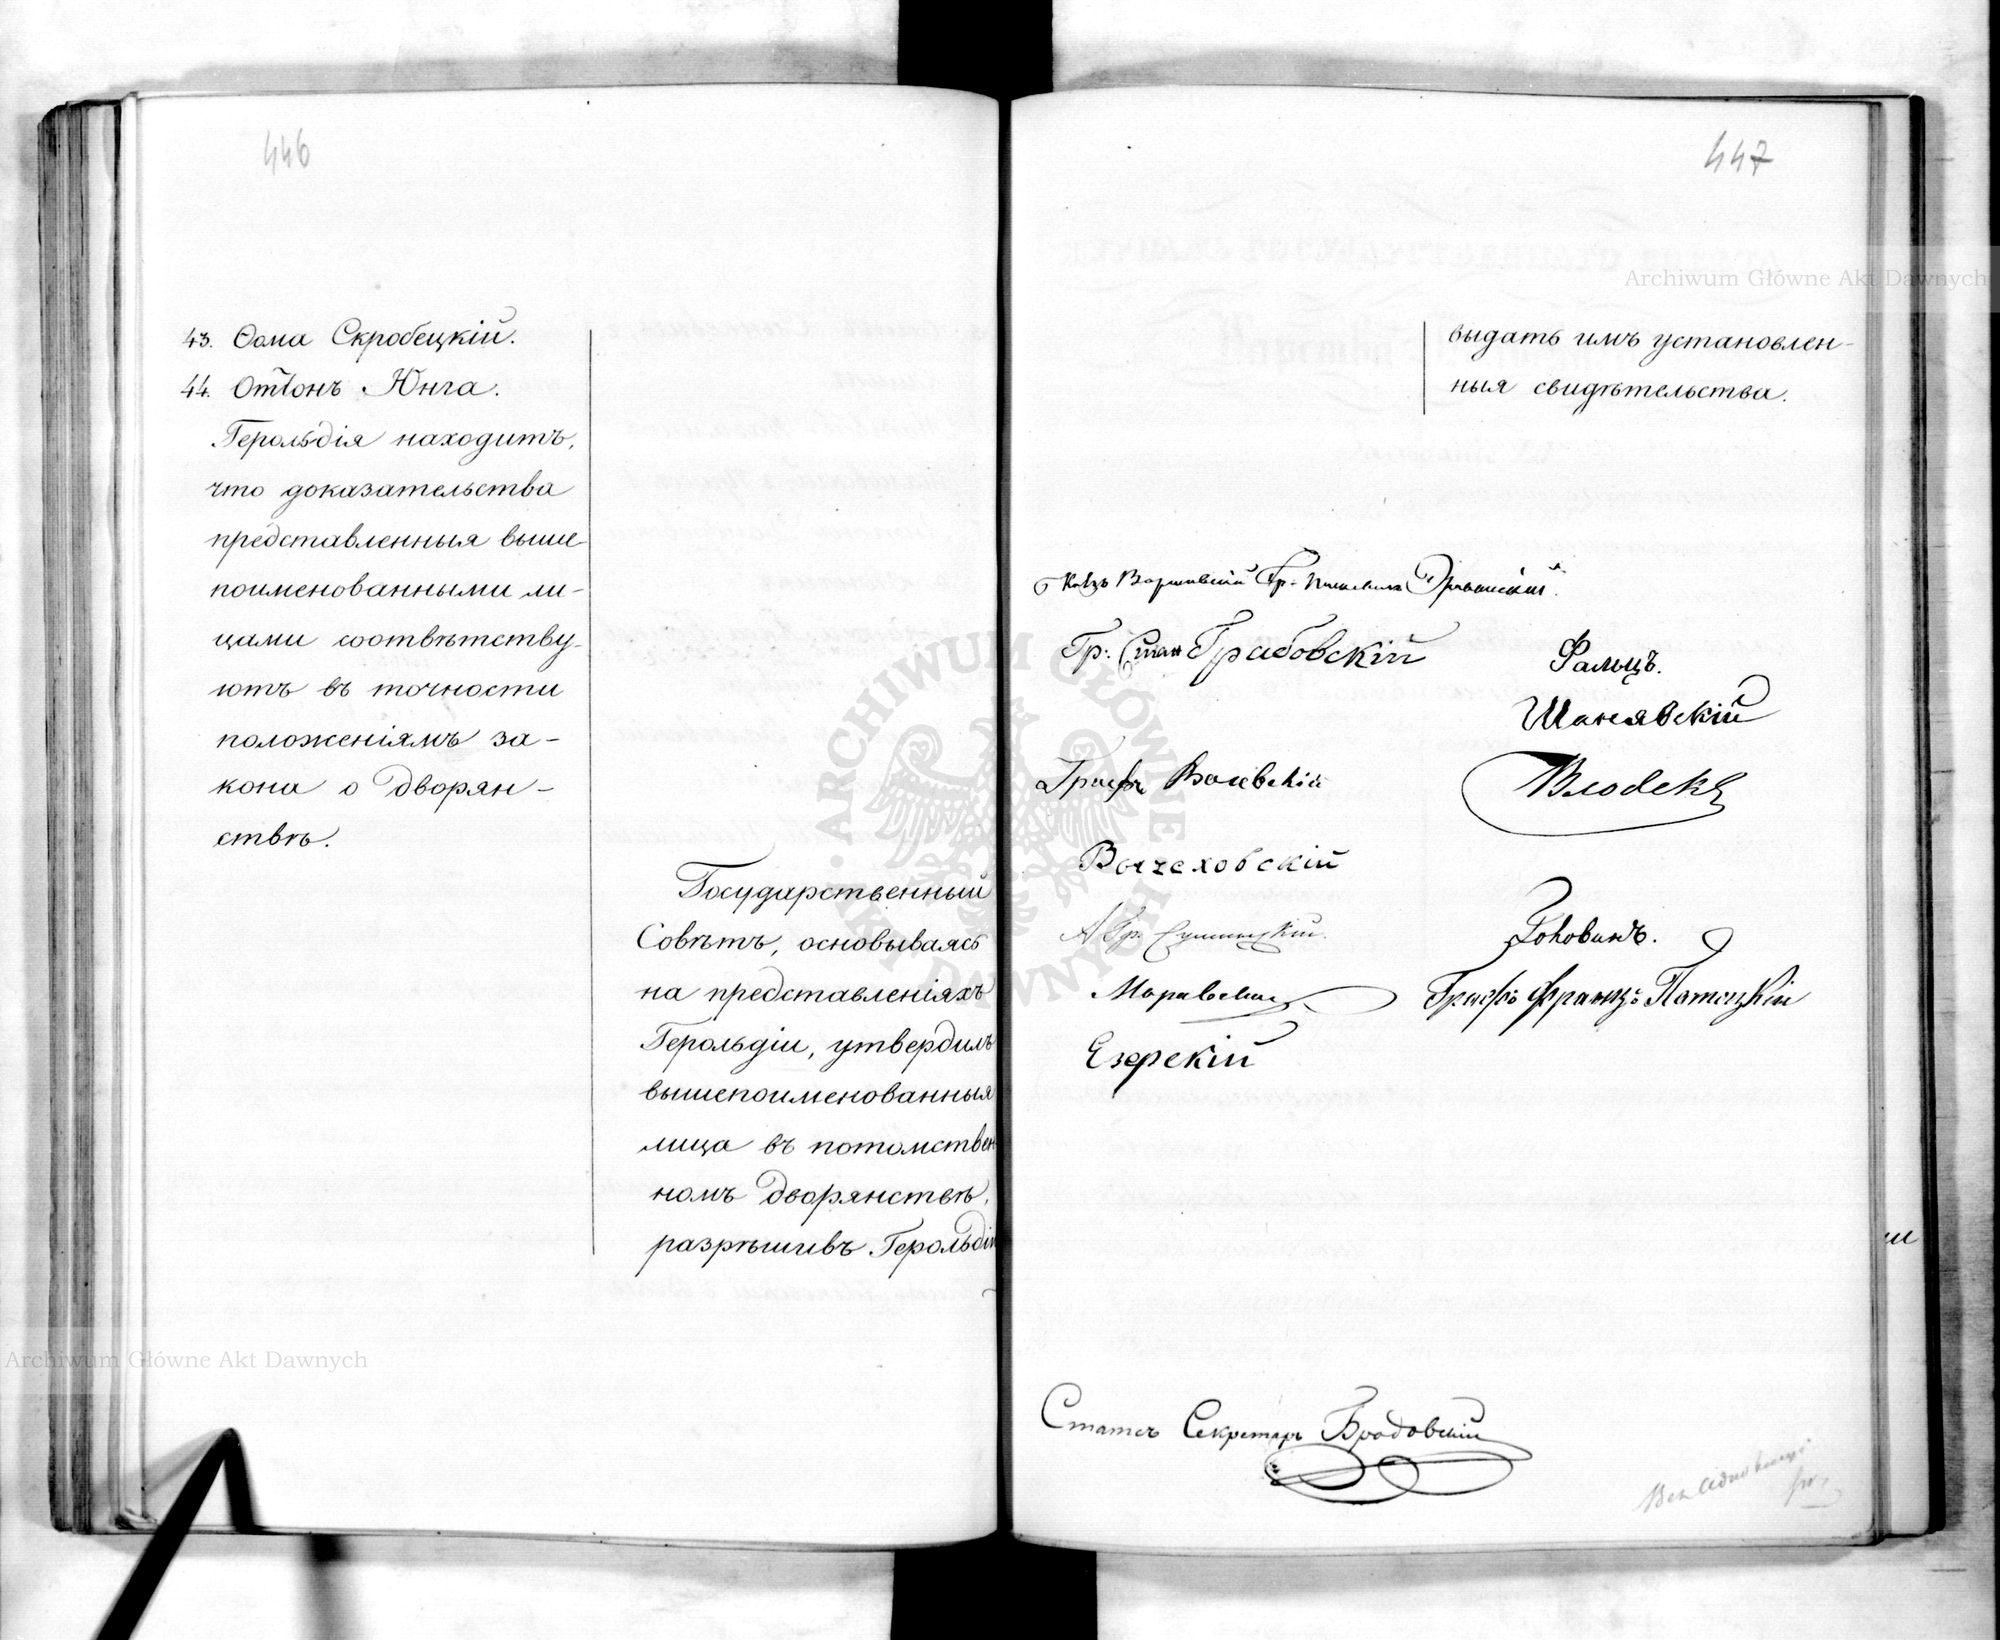 446
43. Ѳома Скробецкій.
44. Оттонъ Юнга.
Герольдія находитъ,
что доказательства
представленныя выше-
поименованными ли-
цами соотвѣтству-
ютъ въ точности
положеніямъ за-
кона о Дворян-
ствѣ.
Государственный
Совѣтъ, основываясь
на представленіяхъ
Герольдіи, утвердилъ
вышепоименованныя
лица въ потомствен
номъ Дворянствѣ,
разрѣшивъ Герольдіи
447
выдать имъ установлен-
ныя свидѣтельства.
Гр: Стан Грабовскій
Фальцъ.
Шанявскій
Графъ
Влодекъ
Вычеховскій
А Гр.
Графъ Францъ Потоцкій
Езерскій
Статсъ Секретарь Бродовскій
Archiwum Główne Akt Dawnych
Archiwum Główne Akt Dawnych
ARCHIWUM GŁÓWNE AKT DAWNYCH